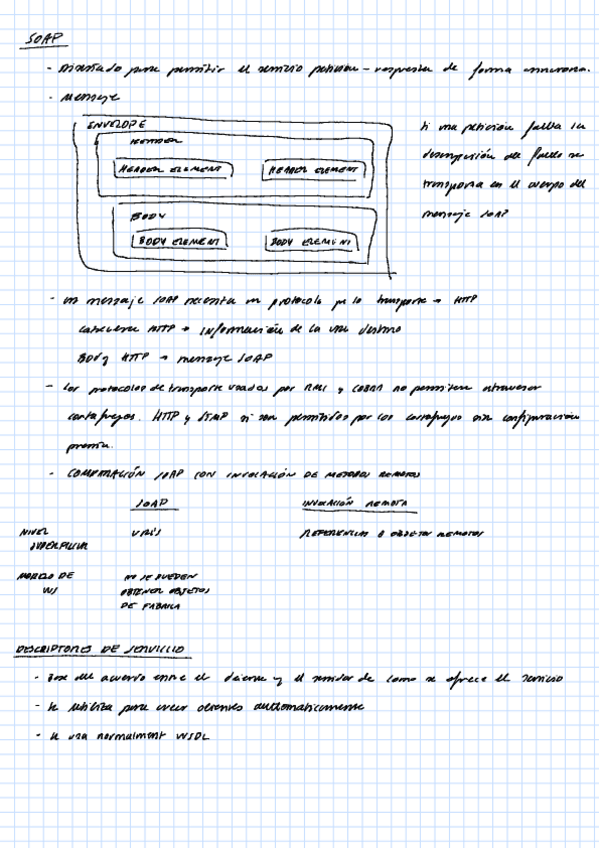 SOAP
- Diseñado para permitir el servicio petición-respuesta de forma asíncrona.
- Mensaje
ENVELOPE
HEADER
HEADER ELEMENT
HEADER ELEMENT
BODY
BODY ELEMENT
BODY ELEMENT
Si una petición falla la
descripción del fallo se
transporta en el cuerpo del
mensaje SOAP
- un mensaje SOAP necesita un protocolo pa lo transporte → HTTP
cabecera HTTP → Información de la URI destino
Body HTTP → mensaje SOAP
- Los protocolos de transporte usados por RMI y COBRA no permiten atravesar
cortafuegos. HTTP y STMP si son permitidos por los cortafuegos sin configuración
previa.
- COMPARACIÓN SOAP CON INVOCACIÓN DE METODOS REMOTOS
SOAP
INVOCACIÓN REMOTA
NIVEL
SUPERFICIAL
URI'S
REFERENCIAS A OBJETOS REMOTOS
MODELO DE
WS
NO SE PUEDEN
OBTENER OBJETOS
DE FABRICA
DESCRIPTORES DE SERVICIO
- Base del acuerdo entre el cliente y el servidor de como se ofrece el servicio
- Se utiliza para crear clientes automaticamente
- Se usa normalment WSDL